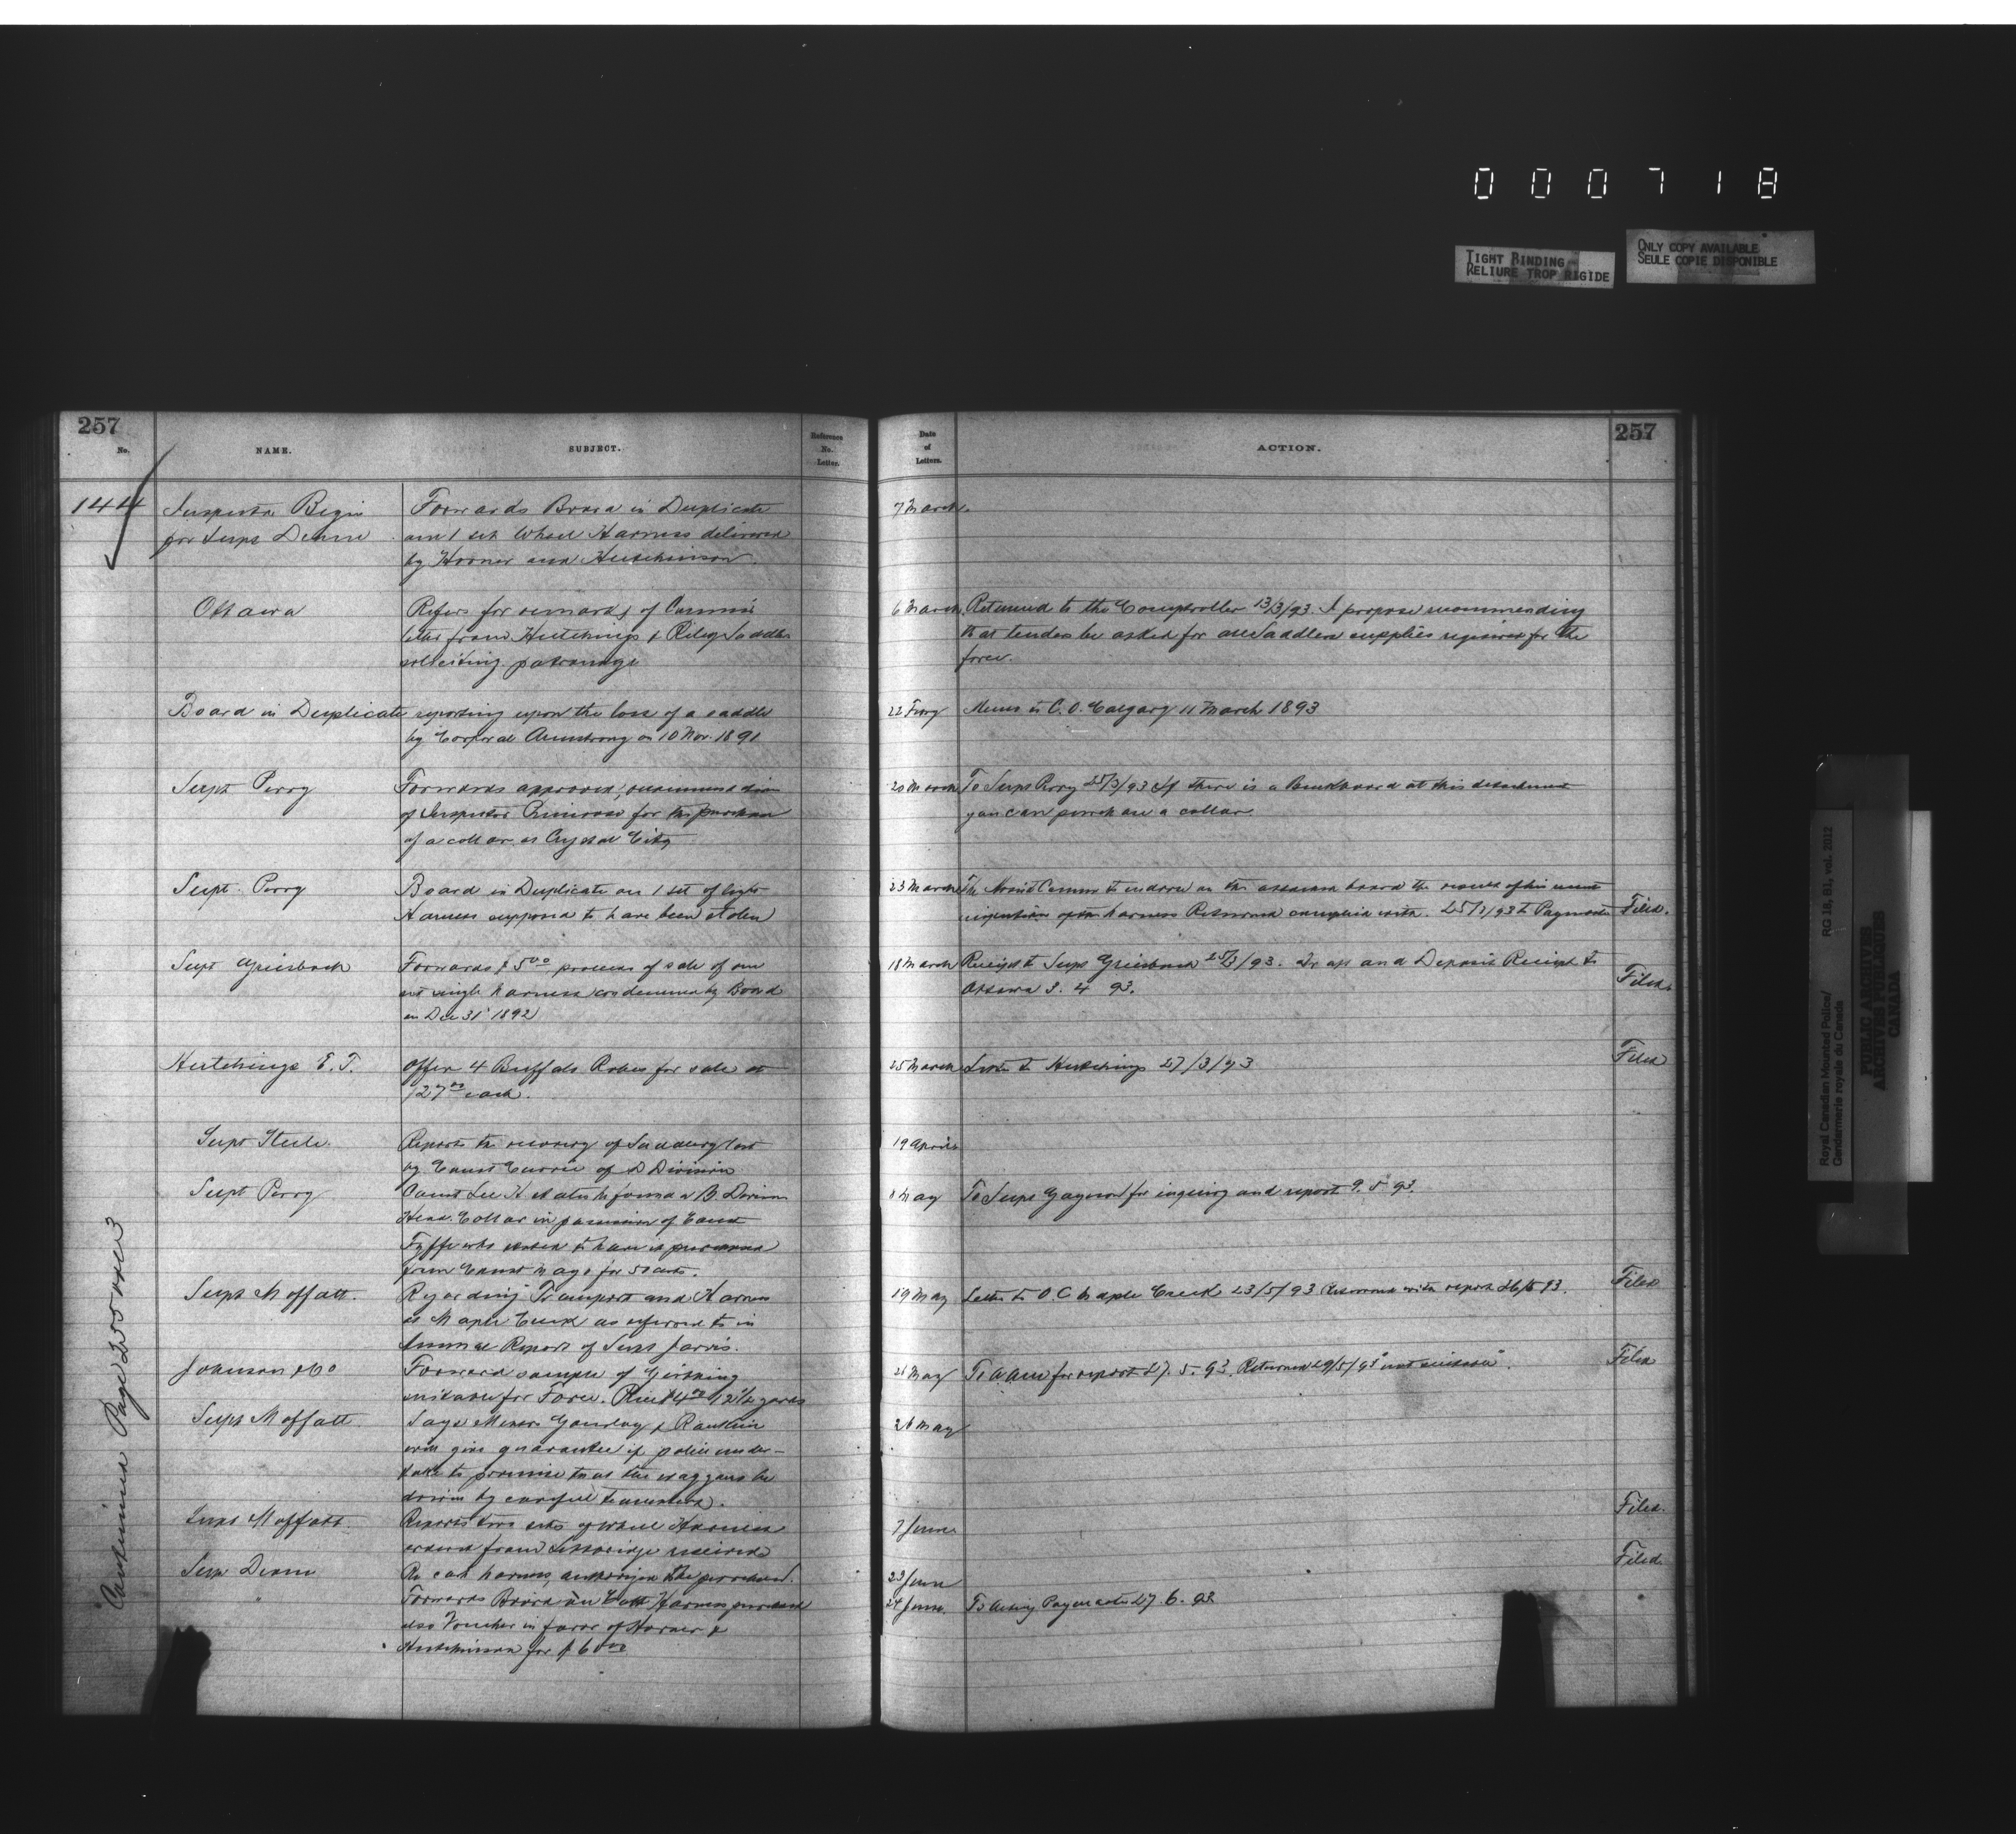 000718
TIGHT BINDING
RELIURE TROP RIGIDE
ONLY COPY AVAILABLE
SEULE COPIE DISPONIBLE
257
No.
NAME.
SUBJECT.
Reference No. Letter.
Date of Letters.
ACTION.
257
144
Inspector Begin
for Supt Deane
Forwards Board in Duplicate
on 1 set Wheel Harness delivered
by Horner and Hutchinson.
7 March
Ottawa
Refers for remarks of Commr
letter from Hutchings & Riley Saddlers
soliciting patronage
6 March
Returned to the Comptroller 13/3/93. I propose recommending
that tenders be asked for all Saddlery supplies required for the
force.
Board in Duplicate reporting upon the loss of a saddle
by Corporal Armstrong on 10 Nov. 1891
22 Fury
Memo to C.O. Calgary 11 March 1893
Supt Perry
Forwards approved, recommendation
of Inspector Primrose for the purchase
of a collar at Crystal City
20 March
To Supt Perry 25/3/93 If there is a Buckboard at this detachment
you can purchase a collar
Supt. Perry
Board in Duplicate on 1 set of light
Harness supposed to have been stolen
23 March
The Assist Commr to endorse on the board the result of his
harness Returned complied with. 25/3/93 to Paymaster
Filed.
Supt Griesbach
Forwards $5.00 proceeds of sale of one
set single harness condemned by Board
on Dec 31st 1892
18 March
Receipt to Supt Griesbach 25/3/93. and Deposit Receipt to
Ottawa 3. 4 93.
Filed.
Hutchings E.F.
Offers 4 Buffalo Robes for sale at
each.
25 March
Letter to Hutchings 27/3/93
Filed
Supt Steele.
Reports the recovery of Saddlery lost
by Const Currie of D Division
19 April
Supt Perry
Const Lee B. Division
Head Collar in possession of Const
Fyffe who stated to have it purchased
from Const Mayo for 50 cents.
8 May
To Supt Gagnon for inquiry and report 9. 5 93.
Supt Moffatt.
Regarding Transport and Harness
at Maple Creek as referred to in
Annual Report of Supt Jarvis.
19 May
Letter to O.C Maple Creek 23/5/93 Returned with report 26/5 93.
Filed
Johnson & Co
Forward sample of Girthing
suitable for Force. Price 12½ yards
May
for report 27. 5. 93. Returned 29/5/93 "not suitable".
Filed
Supt Moffatt
Says Messrs & Rankin
will give guarantee if police under-
take to promise that the waggons be
driven by careful teamsters.
26 May
Supt Moffatt.
Reports two sets of wheel Harness
ordered from Lethbridge received
7 June
Filed.
Supt Deane
Re cart harness, authorizes the purchase.
23 June
Filed.
"
Forwards Board on Cart Harness purchased
also Voucher in favor of Horner &
Hutchinson for $6.00
24 June.
To Acting Paymaster 27. 6. 93
Continued Page
Royal Canadian Mounted Police/
Gendarmerie royale du Canada
RG 18, B1, vol. 2012
PUBLIC ARCHIVES
ARCHIVES PUBLIQUES
CANADA